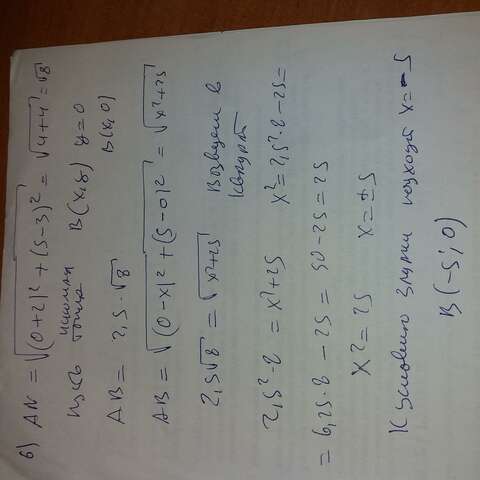 б) AN = √((0+2)² + (5-3)²) = √(4+4) = √8
Пусть искомая точка B(x,y) y=0
AB = 2,5·√8 B(x,0)
AB = √((0-x)² + (5-0)²) = √(x²+25)
2,5√8 = √(x²+25) Возведем в квадрат
2,5²·8 = x²+25 x² = 2,5²·8-25 =
= 6,25·8 - 25 = 50-25 = 25
x² = 25 x = ±5
К условию задачи подходит x = -5
B(-5; 0)